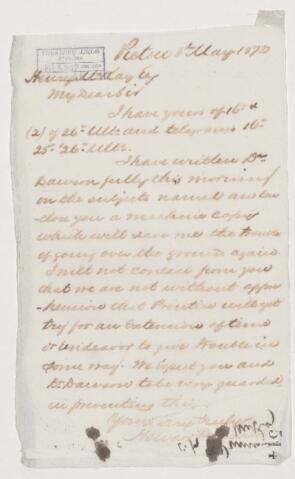 Pictou 1st May 1873
Henry McKay Esq
My Dear Sir
I have yours of 16th &
(2) of 26th Ults. and telegrams 16th
25th & 26th Ults.
I have written Dr
Dawson fully this morning
on the subjects named and en
close you a machine copy
which will save me the trouble
of going over the ground again.
I will not conceal from you
that we are not without appre
-hension that Prentice will yet
try for an Extension of time
or endeavor to give trouble in
some way. We expect you and
Dr. Dawson to be very guarded
in preventing this.
Yours very truly